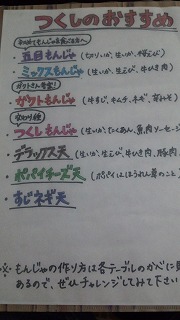 つくしのおすすめ
初めてもんじゃを食べる方へ
五目もんじゃ(切りいか、生いか、桜えび)
ミックスもんじゃ(生いか、生えび、牛ひき肉)
ガクトさん考案!
ガクトもんじゃ(牛すじ、キムチ、ネギ、辛みそ)
変わり種
つくしもんじゃ(生いか、たくあん、魚肉ソーセージ
・デラックス天(生いか、生えび、牛ひき肉、豚肉
・ポパイチーズ天(ポパイはほうれん草のこと)
・すじネギ天
※もんじゃの作り方は各テーブルのかべに
あるので、ぜひチャレンジしてみて下さい